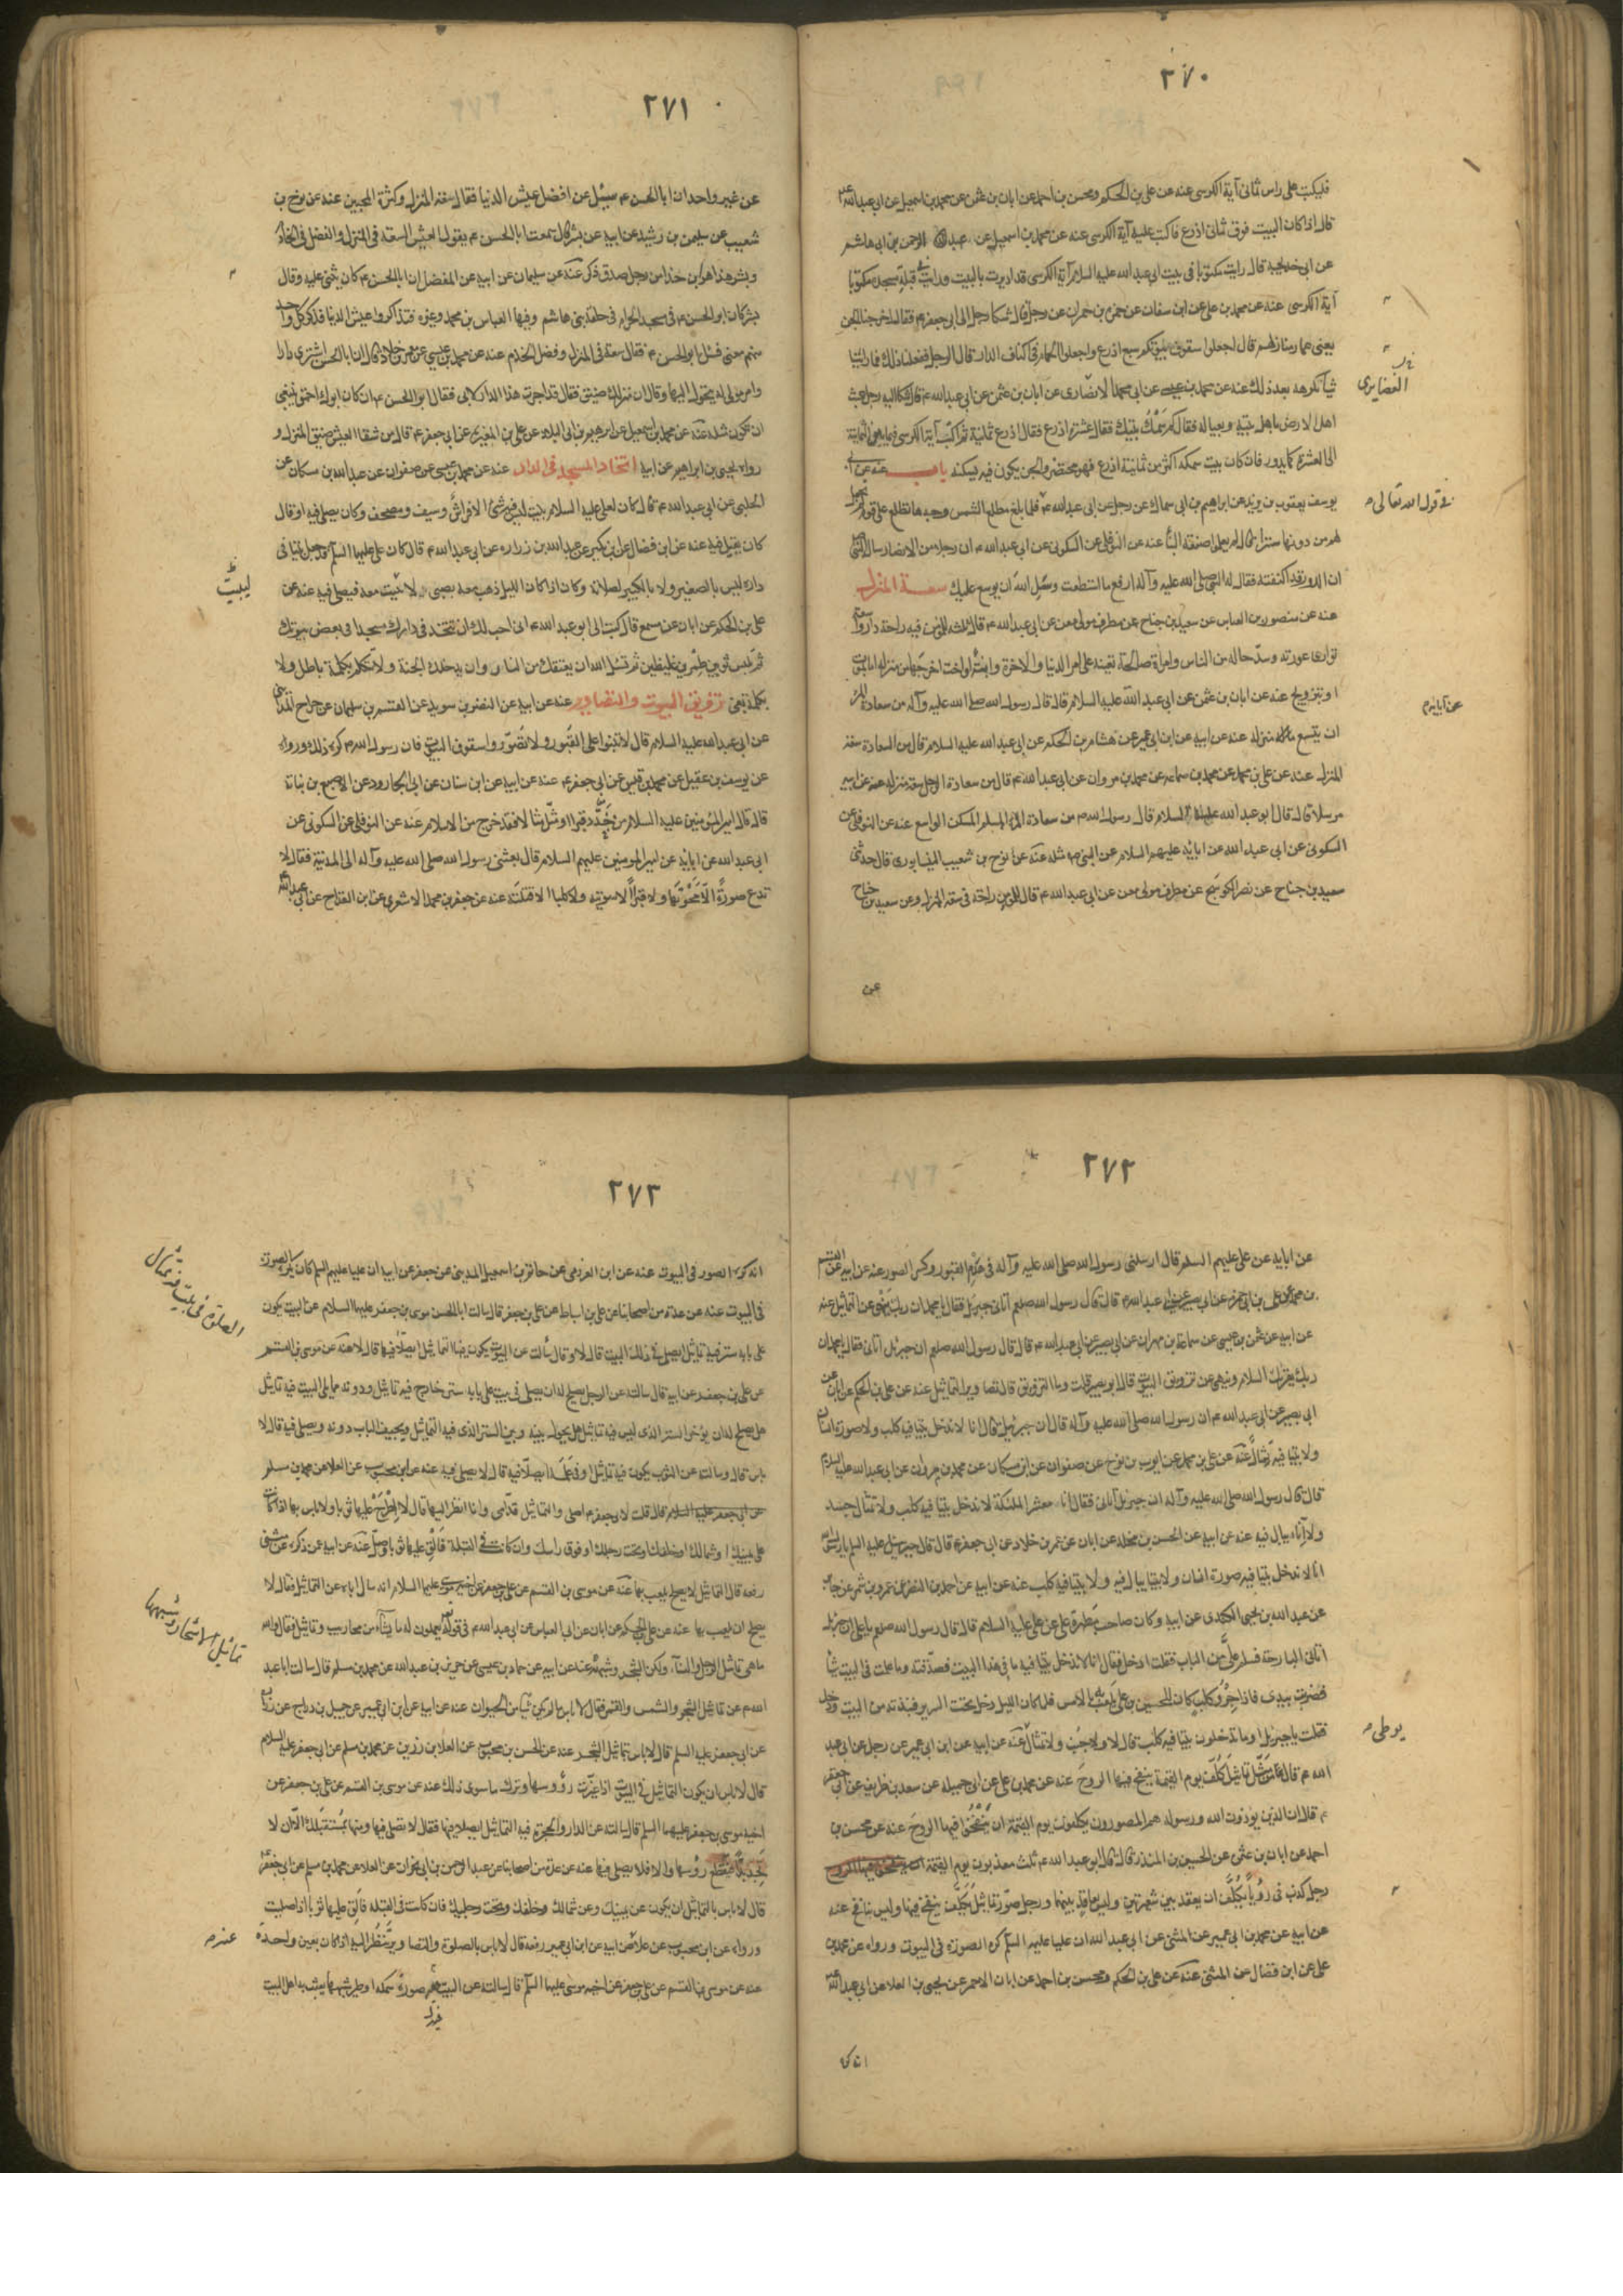 ٢٧٠
فليكتب على راس ثماني آية الكرسى عنه عن على بن الحكم ومحسن بن احمد عن ابان بن عثمن عن محمد بن اسمعيل عن ابى عبد الله ع
قال اذا كان البيت فوق ثمانى اذرع فاكتب عليه آية الكرسى عنه عن محمد بن اسمعيل عن عبد الرحمن بن ابى هاشم
عن ابى خديجة قال رايت مكتوبا فى بيت ابى عبد الله عليه السلام آية الكرسى قد اديرت بالبيت ورايت فى قبلة مسجده مكتوبا
آية الكرسى عنه عن محمد بن على عن ابن سنان عن حمزه بن حمران عن رجل قال شكا رجل الى ابى جعفر ع فقال اخرجتنا الجن
يعنى عمار منازلهم قال اجعلوا سقوف بيوتكم سبع اذرع واجعلوا الحمام فى اكناف الدار قال الرجل ففعلنا ذلك فما راينا
شيئا نكرهه بعد ذلك عنه عن محمد بن عيسى عن ابى محمد الانصارى عن ابان بن عثمن عن ابى عبد الله ع قال شكا اليه رجل عبث
اهل الارض باهل بيته وبعياله فقال كم سمك بيتك فقال عشرة اذرع فقال اذرع ثمانية ثم اكتب آية الكرسى فيما بين الثمانية
الى العشرة كما يدور فان كل بيت سمكه اكثر من ثمانية اذرع فهو محتضر والجن يكون فيه يسكنه باب عنه عن ابى
يوسف يعقوب بن يزيد عن ابراهيم بن ابى سماك عن رجل عن ابى عبد الله ع فلما بلغ مطلع الشمس وجدها تطلع على قوم لم نجعل
لهم من دونها سترا قال لم يعلموا صنعة البناء عنه عن النوفلى عن السكونى عن ابى عبد الله ع ان رجلا من الانصار سال النبى
ان الدور قد اكتنفته فقال له النبى صلى الله عليه وآله ارفع ما استطعت وسل الله ان يوسع عليك سعة المنزل
عنه عن منصور بن العباس عن سعيد بن جناح عن مطرف مولى معن عن ابى عبد الله ع قال ثلثه للمؤمن فيه راحة دار واسعة
توارى عورته وسوء حاله من الناس وامراة صالحة تعينه على امر الدنيا والآخرة وابنة او اخت اخرجها من منزله اما بموت
او بتزويج عنه عن ابان بن عثمن عن ابى عبد الله عليه السلام قال قال رسول الله صلى الله عليه وآله من سعادة المرء
ان يتسع منزله عنه عن ابيه عن ابن ابى عمير عن هشام بن الحكم عن ابى عبد الله عليه السلام قال من السعادة سعة
المنزل عنه عن على بن محمد عن محمد بن سماعه عن محمد بن مروان عن ابى عبد الله ع قال من سعادة الرجل سعة منزله عنه عن ابيه
مرسلا قال قال ابو عبد الله عليه السلام قال رسول الله ص من سعادة المرء المسلم المسكن الواسع عنه عن النوفلى عن
السكونى عن ابى عبد الله عن ابائه عليهم السلام عن النبى ص مثله عنه عن نوح بن شعيب النيسابورى قال حدثنى
سعيد بن جناح عن نصر الكوسج عن مطرف مولى معن عن ابى عبد الله ع قال للمؤمن راحة فى سعة المنزل وعن سعيد بن جناح
عن
العضايرى
فى قول الله تعالى
عن آبائه ع
٢٧١
عن غير واحد ان ابا الحسن ع سئل عن افضل عيش الدنيا فقال سعة المنزل وكثرة المحبين عنه عن نوح بن
شعيب عن سليمن بن رشيد عن ابيه عن بشر قال سمعت ابا الحسن ع يقول العيش السعة فى المنزل والفضل فى الخادم
وبشر هذا هو ابن حذام رجل صدق ذكر عنه عن سليمان عن ابيه عن المفضل ان ابا الحسن ع كان يثنى عليه وقال
بشر كان ابو الحسن ع فى مسجد الحرام فى حلقة بنى هاشم وفيها العباس بن محمد وغيره فتذاكروا عيش الدنيا فذكر كل واحد
منهم معنى فسئل ابو الحسن ع فقال سعة فى المنزل وفضل الخادم عنه عن محمد بن عيسى عن معمر بن خلاد قال ان ابا الحسن اشترى دارا
وامر مولى له يتحول اليها وقال ان منزلك ضيق فقال قد اجزت هذا الدار لابى فقال ابو الحسن ع ان كان ابوك احمق ينبغى
ان تكون مثله عنه عن محمد بن اسمعيل عن ابرهيم بن ابى البلاد عن على بن المغيرة عن ابى جعفر ع قال من شقاء العيش ضيق المنزل و
رواه يحيى بن ابراهيم عن ابيه اتخاذ المسجد فى الدار عنه عن محمد بن عيسى عن صفوان عن عبد الله بن مسكان عن
الحلبى عن ابى عبد الله ع قال كان لعلى عليه السلام بيت ليس فيه شئ الا فراش وسيف ومصحف وكان يصلى فيه او قال
كان يقيل فيه عنه عن ابن فضال عن ابن بكير عن عبد الله بن زراره عن ابى عبد الله ع قال كان على عليه السلم قد جعل بيتا فى
داره ليس بالصغير ولا بالكبير لصلاته وكان اذا كان الليل ذهب معه بصبى لا يبيت معه فيصلى فيه عنه عن
على بن الحكم عن ابان عن مسمع قال كتب الى ابو عبد الله ع انى احب لك ان تتخذ فى دارك مسجدا فى بعض بيوتك
ثم تلبس ثوبين طمرين غليظين ثم تسئل الله ان يعتقك من النار وان يدخلك الجنة ولا تتكلم بكلمة باطل ولا
بكلمة بغى تزويق البيوت والتصاوير عنه عن ابيه عن النضر بن سويد عن القسم بن سليمان عن جراح المداينى
عن ابى عبد الله عليه السلام قال لا تبنوا على القبور ولا تصوروا سقوف البيوت فان رسول الله ص كره ذلك ورواه
عن يوسف بن عقيل عن محمد بن قيس عن ابى جعفر ع عنه عن ابيه عن ابن سنان عن ابى الجارود عن الاصبغ بن نباتة
قال قال امير المؤمنين عليه السلام من جدد قبرا او مثل مثالا فقد خرج من الاسلام عنه عن النوفلى عن السكونى عن
ابى عبد الله عن ابائه عن امير المومنين عليهم السلام قال بعثنى رسول الله صلى الله عليه وآله الى المدينة فقال لا
تدع صورة الا محوتها ولا قبرا الا سويته ولا كلبا الا قتلته عنه عن جعفر بن محمد الاشعرى عن ابن القداح عن ابى عبد الله
ليبيت
٢٧٢
عن ابايه عن على عليهم السلم قال ارسلنى رسول الله صلى الله عليه وآله فى هدم القبور وكسر الصور عنه عن ابيه عن القسم
بن محمد عن على بن ابى حمزه عن ابى بصير عن ابى عبد الله ع قال قال رسول الله صلعم اتانى جبرئيل فقال يا محمد ان ربك ينهى عن التماثيل عنه
عن ابيه عن عثمن بن عيسى عن سماعة بن مهران عن ابى بصير عن ابى عبد الله ع قال قال رسول الله صلعم ان جبرئل اتانى فقال يا محمد ان
ربك يقرئك السلام وينهى عن تزويق البيوت قال ابو بصير قلت وما التزويق قال تصاوير التماثيل عنه عن على بن الحكم عن ابان عن
ابى بصير عن ابى عبد الله ع ان رسول الله صلى الله عليه وآله قال ان جبرئيل قال انا لا ندخل بيتا فيه كلب ولا صورة انسان
ولا بيتا فيه تمثال عنه عن على بن محمد عن ايوب بن نوح عن صفوان عن ابن مسكان عن محمد بن مروان عن ابى عبد الله عليه السلام
قال قال رسول الله صلى الله عليه وآله ان جبرئيل اتانى فقال انا معشر الملئكة لا ندخل بيتا فيه كلب ولا تمثال جسد
ولا اناء يبال فيه عنه عن ابيه عن الحسن بن مخلد عن ابان عن عمر بن خلاد عن ابى جعفر ع قال قال جبرئيل عليه السلم يا رسول الله
انا لا ندخل بيتا فيه صورة انسان ولا بيتا يبال فيه ولا بيتا فيه كلب عنه عن ابيه عن احمد بن النضر عن عمرو بن شمر عن جابر
عن عبد الله بن يحيى الكندى عن ابيه وكان صاحب مطهرة على عن على عليه السلام قال قال رسول الله صلعم يا على ان جبرئل
اتانى البارحة فسلم على من الباب فقلت ادخل فقال انا لا ندخل بيتا فيه ما فى هذا البيت فصدقته وما علمت فى البيت شيئا
فضربت بيدى فاذا جرو كلب كان للحسين بن على يلعب به الامس فلما كان الليل دخل تحت السرير فنبذته من البيت ودخل
فقلت يا جبرئيل اوما تدخلون بيتا فيه كلب قال لا ولا جنب ولا تمثال عنه عن ابيه عن ابن ابى عمير عن رجل عن ابى عبد
الله ع قال من مثل تماثيل كلف يوم القيمة ينفخ فيها الروح عنه عن محمد بن على عن ابى جميله عن سعد بن طريف عن ابى جعفر
ع قال ان الذين يؤذون الله ورسوله هم المصورون يكلفون يوم القيمة ان ينفخوا فيها الروح عنه عن محسن بن
احمد عن ابان بن عثمن عن الحسين بن المنذر قال قال ابو عبد الله ع ثلث معذبون يوم القيمة
رجل كذب فى رؤياه يكلف ان يعقد بين شعيرتين وليس بعاقد بينهما ورجل صور تماثيل يكلف ينفخ فيها وليس بنافخ عنه
عن ابيه عن محمد بن ابى عمير عن المثنى عن ابى عبد الله ان عليا عليه السلم كره الصورة فى البيوت ورواه عن محمد بن
على عن ابن فضال عن المثنى عنه عن على بن الحكم ومحسن بن احمد عن ابان الاحمر عن يحيى بن العلا عن ابى عبد الله ع
انه كره
يوطى
٢٧٣
انه كره الصور فى البيوت عنه عن ابن العزرمى عن حاتم بن اسمعيل المدينى عن جعفر عن ابيه ان عليا عليهم السلم كان يكره الصورة
فى البيوت عنه عن عدة من اصحابنا عن على بن اسباط عن على بن جعفر قال سالت ابا الحسن موسى بن جعفر عليهما السلام عن البيت يكون
على بابه ستر فيه تماثيل ايصلى فى ذلك البيت قال لا وقال سالت عن البيوت يكون فيها التماثيل ايصلى فيها قال لا عنه عن موسى بن القسم
عن على بن جعفر عن ابيه قال سالته عن الرجل يصلح له ان يصلى فى بيت على بابه ستر خارج فيه تماثيل ودونه مما يلى البيت فيه تماثيل
هل يصلح له ان يؤخر الستر الذى ليس فيه تماثيل هل يحول بينه وبين الستر الذى فيه التماثيل ويجيف الباب دونه ويصلى فيه قال لا
باس قال وسالته عن الثوب يكون فيه تماثيل او فى علمه ايصلى فيه قال لا يصلى فيه عنه عن ابن محبوب عن العلا عن محمد بن مسلم
عن ابى جعفر عليه السلام قال قلت لابى جعفر ع اصلى والتماثيل قدامى وانا انظر اليها قال لا اطرح عليها ثوبا ولا باس بها اذا كانت
على يمينك او شمالك او خلفك او تحت رجلك او فوق راسك وان كانت فى القبلة فالق عليها ثوبا وصل عنه عن ابيه عمن ذكره عن مثنى
رفعه قال التماثيل لا يصلح يلعب بها عنه عن موسى بن القسم عن على بن جعفر عن اخيه موسى عليهما السلام انه سال اباه عن التماثيل فقال لا
يصلح ان يلعب بها عنه عن على بن الحكم عن ابان عن ابى العباس عن ابى عبد الله ع فى قوله يعملون له ما يشاء من محاريب وتماثيل فقال والله
ما هى تماثيل الرجال والنساء ولكن الشجر وشبهه عنه عن ابيه عن حماد بن عيسى عن حريز بن عبد الله عن محمد بن مسلم قال سالت ابا عبد
الله ع عن تماثيل الشجر والشمس والقمر فقال لا باس ما لم يكن شيئا من الحيوان عنه عن ابيه عن ابن ابى عمير عن جميل بن دراج عن زرارة
عن ابى جعفر عليه السلم قال لا باس بتماثيل الشجر عنه عن الحسن بن محبوب عن العلا بن رزين عن محمد بن مسلم عن ابى جعفر عليه السلام
قال لا باس ان يكون التماثيل فى البيوت اذا غيرت رؤوسها وترك ما سوى ذلك عنه عن موسى بن القسم عن على بن جعفر عن
اخيه موسى بن جعفر عليهما السلم قال سالته عن الدار والحجرة فيها التماثيل ايصلى فيها فقال لا تصلى فيها ومنها مستقبلك الا ان لا
تجد بدا فتقطع رؤسها والا فلا يصلى فيها عنه عن عدة من اصحابنا عن عبد الرحمن بن ابى نجران عن العلا عن محمد بن مسلم عن ابى جعفر ع
قال لا باس بالتماثيل ان يكون عن يمينك وعن شمالك وخلفك وتحت رجليك فان كانت فى القبله فالق عليها ثوبا اذا صليت
ورواه عن ابن محبوب عن علا عن ابيه عن ابن ابى عمير رفعه قال لا باس بالصلوة والتصاوير تنظر اليه اذا كان بعين واحدة
عنه عن موسى بن القسم عن على بن جعفر عن اخيه موسى عليهما السلم قال سالته عن البيت فيه صورة سمكة او طير شبهها يعبث به اهل البيت
الصلوة فى بيت فيه تمثال
تماثيل الاشجار وشبهها
عنه